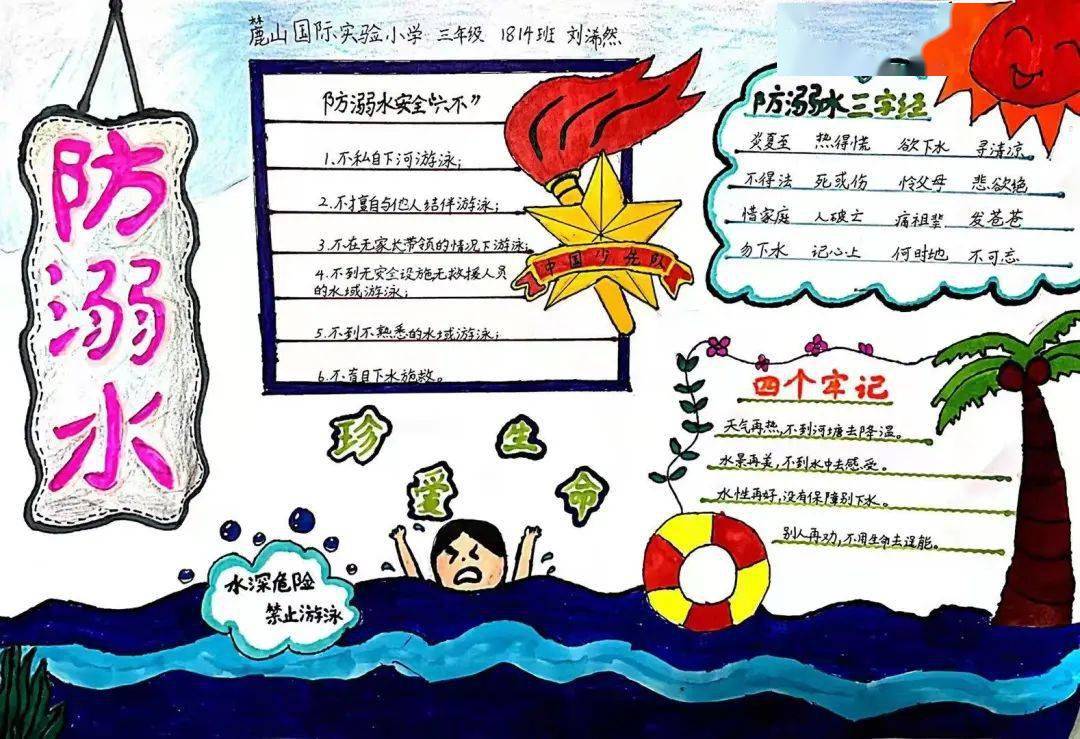 麓山国际实验小学 三年级 1814班 刘浠然
防溺水
防溺水安全“六不”
1.不私自下河游泳；
2.不擅自与他人结伴游泳；
3.不在无家长带领的情况下游泳；
4.不到无安全设施无救援人员
的水域游泳；
5.不到不熟悉的水域游泳；
6.不盲目下水施救。
中国少先队
防溺水三字经
炎夏至 热得慌 欲下水 寻清凉
不得法 死或伤 怜父母 悲欲绝
惜家庭 人破亡 痛祖辈 发苍苍
勿下水 记心上 何时地 不可忘
四个牢记
天气再热，不到河塘去降温。
水景再美，不到水中去感受。
水性再好，没有保障别下水。
别人再劝，不用生命去逞能。
珍爱生命
水深危险
禁止游泳